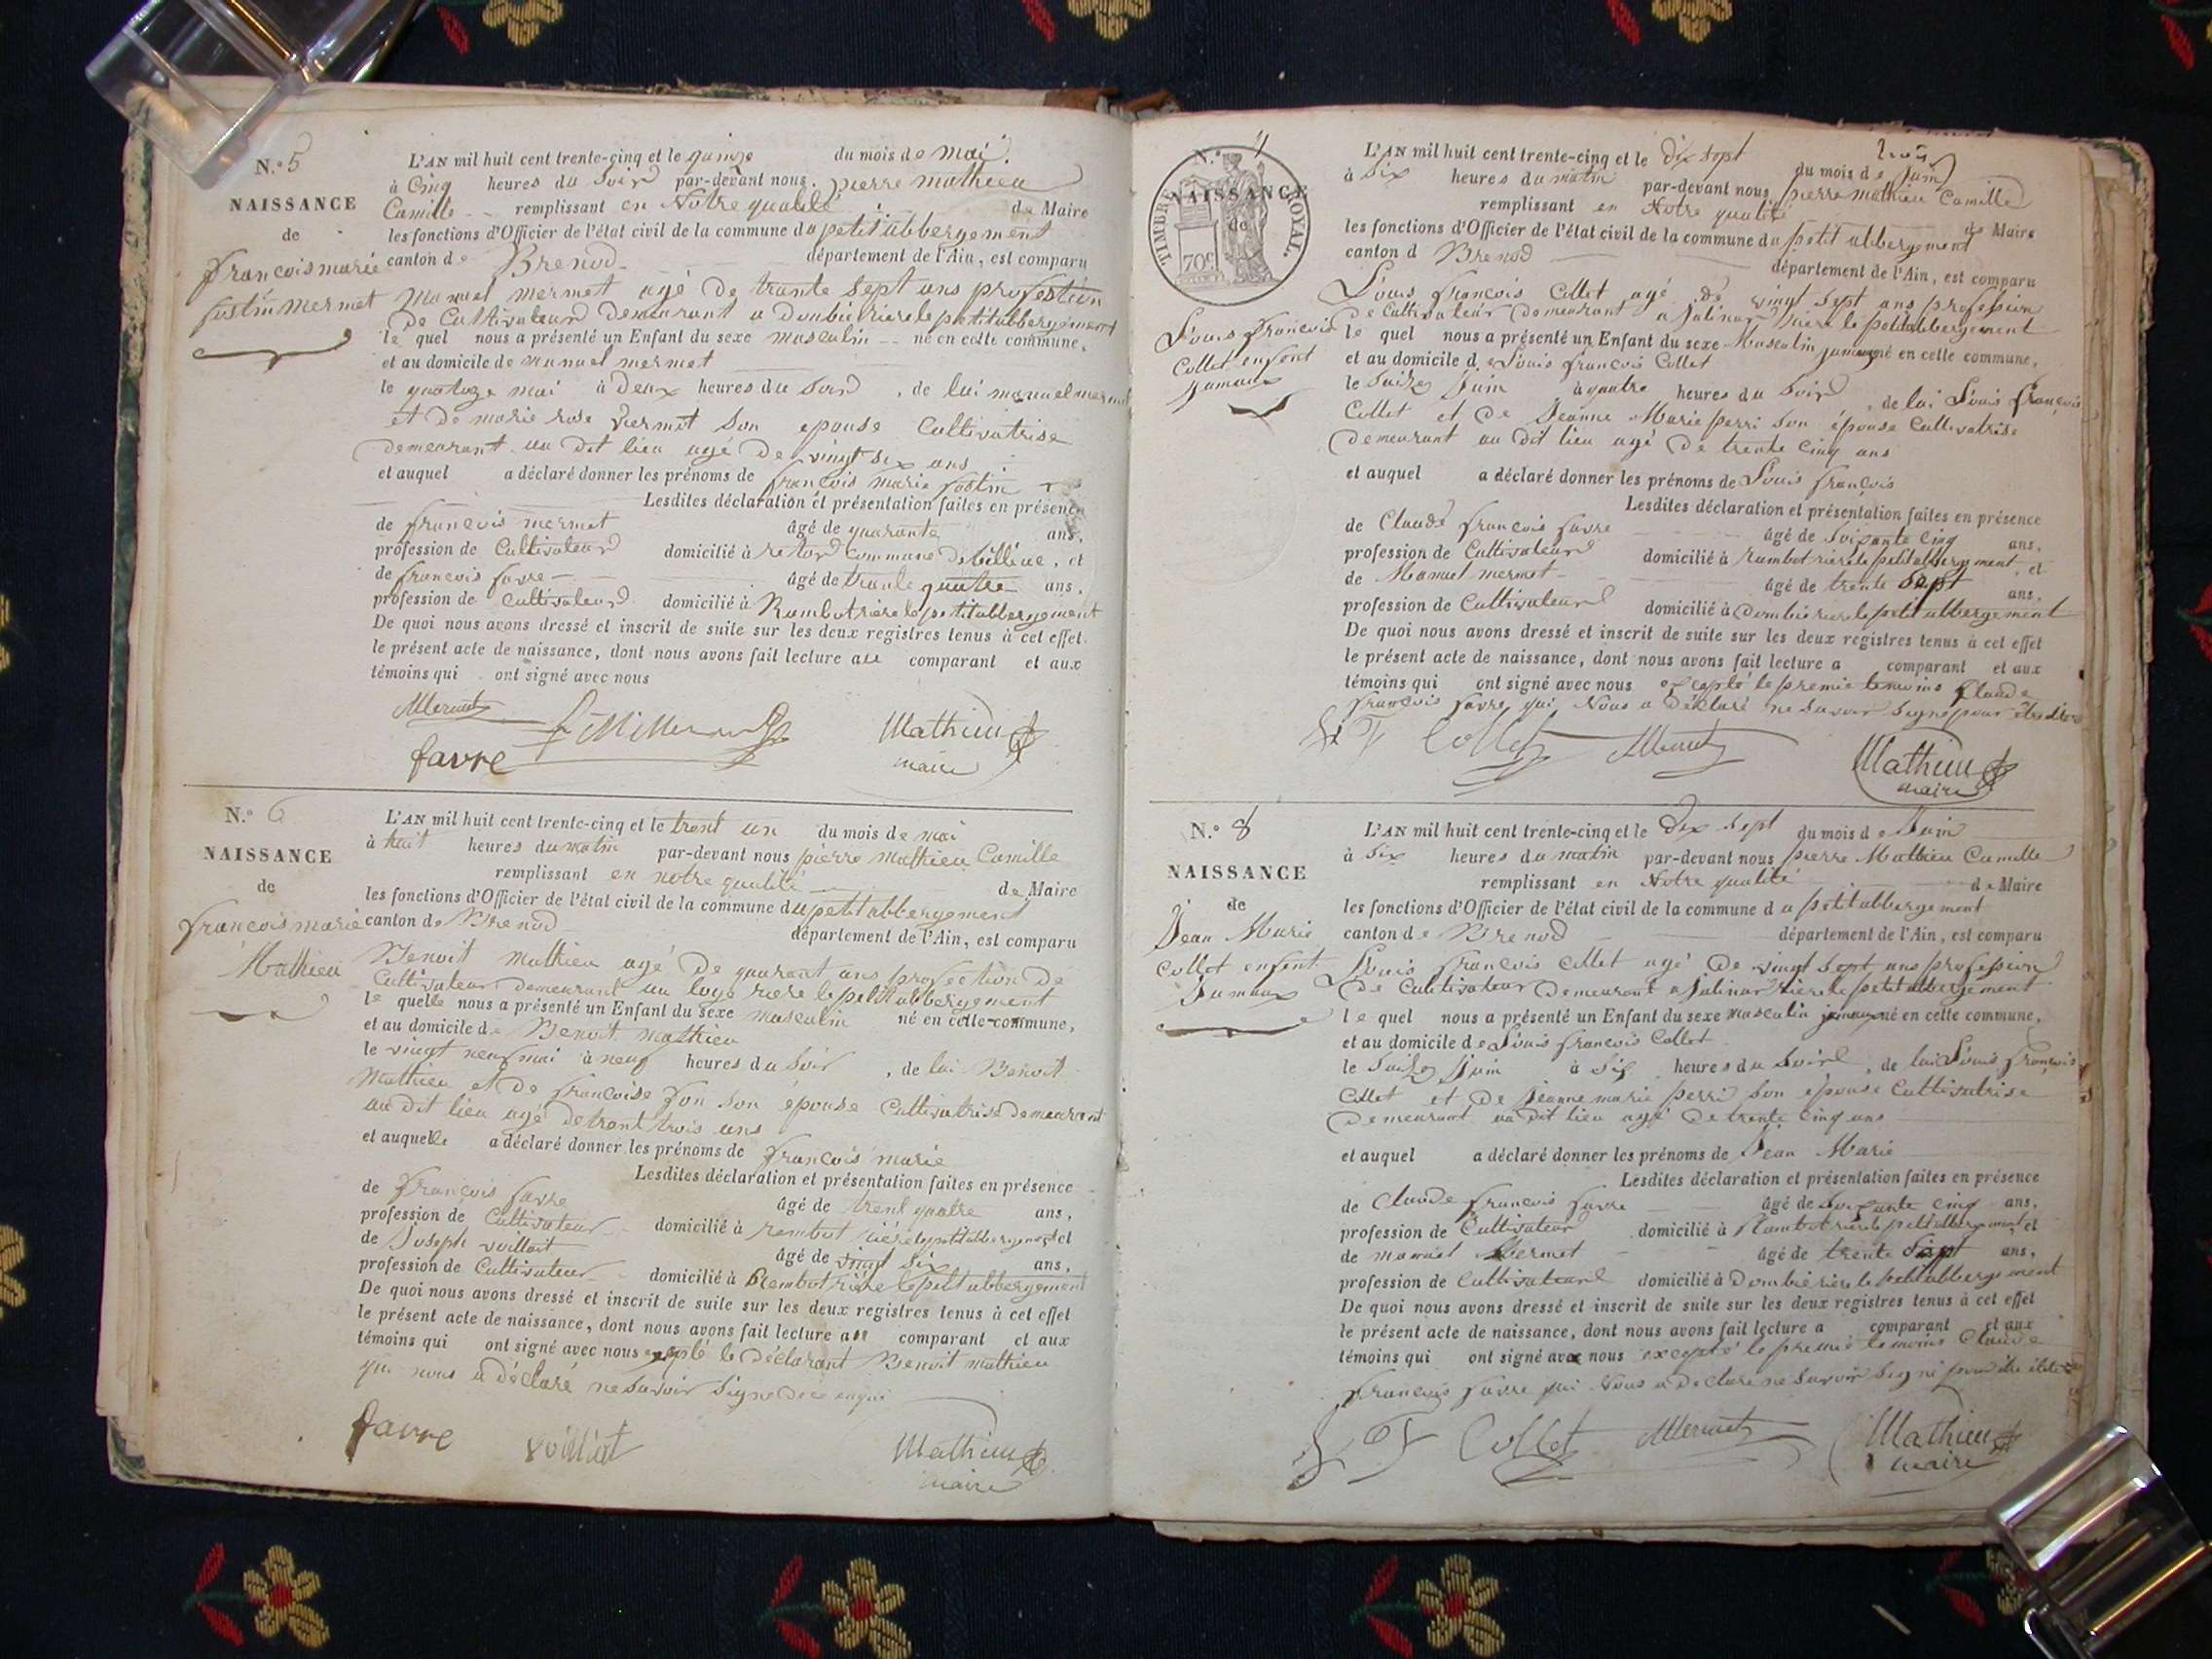 N.° 5
NAISSANCE
de
françois marie
justin mermet
L'AN mil huit cent trente-cinq et le quinze du mois de mai.
à Cinq heures du Soir par-devant nous. pierre mathieu
Camille remplissant en Notre qualité de Maire
les fonctions d'Officier de l'état civil de la commune du petit abbergement
canton de Brenod département de l'Ain, est comparu
Manuel mermet agé de trante Sept ans profession
de Cultivateur demeurant a Dombé riere le petit abbergement
le quel nous a présenté un Enfant du sexe masculin né en cette commune,
et au domicile de manuel mermet
le quatoze mai à Deux heures du Soir , de lui manuel mermet
et de marie rose Vermet Son epouse Cultivatrise
demeurant au dit lieu agé de vingt six ans
et auquel a déclaré donner les prénoms de françois marie justin
Lesdites déclaration et présentation faites en présence
de françois mermet âgé de quarante ans,
profession de Cultivateur domicilié à retord Commune de , et
de françois favre âgé de trante quatre ans,
profession de Cultivateur domicilié à Rambot rière le petit abbergement
De quoi nous avons dressé et inscrit de suite sur les deux registres tenus à cet effet
le présent acte de naissance, dont nous avons fait lecture au comparant et aux
témoins qui ont signé avec nous
Mermet
favre
Mathieu
maire
N.° 6
NAISSANCE
de
françois marie
Mathieu
L'AN mil huit cent trente-cinq et le trent un du mois de mai
à huit heures du matin par-devant nous pierre Mathieu Camille
remplissant en notre qualité de Maire
les fonctions d'Officier de l'état civil de la commune du petit abbergement
canton de Brenod département de l'Ain, est comparu
Benoit Mathieu agé de quarant ans profection de
Cultivateur demeurant au loyé riere le petit abbergement
le quelle nous a présenté un Enfant du sexe masculin né en cette commune,
et au domicile de Benoit mathieu
le vingt neuf mai à neuf heures du Soir , de lui Benoit
Mathieu et de françoise Jon son épouse Cultivatrise demeurant
au dit lieu agé de trant trois ans
et auquelle a déclaré donner les prénoms de françois marie
Lesdites déclaration et présentation faites en présence
de françois favre âgé de trent quatre ans,
profession de Cultivateur domicilié à rambot rière le petit abbergement et
de Joseph vuillait âgé de vingt six ans,
profession de Cultivateur domicilié à Rembot rière le petit abbergement
De quoi nous avons dressé et inscrit de suite sur les deux registres tenus à cet effet
le présent acte de naissance, dont nous avons fait lecture au comparant et aux
témoins qui ont signé avec nous exepté le déclarant Benoit mathieu
qui nous a déclaré ne savoir signé de ce enqui
favre
Mathieu
maire
N.°
TIMBRE ROYAL.
70c
NAISSANCE
de
Louis françois
Collet enfent
jumaux
L'AN mil huit cent trente-cinq et le dix sept du mois de juin
à six heures du matin par-devant nous pierre mathieu Camille
remplissant en Notre qualité de Maire
les fonctions d'Officier de l'état civil de la commune du petit abbergement
canton d Brenod département de l'Ain, est comparu
Louis françois Collet agé de vingt sept ans profession
de Cultivateur demeurant a jalinar riere le petit abbergement
le quel nous a présenté un Enfant du sexe Masculin jumaux né en cette commune,
et au domicile de Louis françois Collet
le saize juin à quatre heures du Soir , de lui Louis françois
Collet et de Jeanne Marie perri son épouse Cultivatrise
demeurant au dit lieu agé de trente cinq ans
et auquel a déclaré donner les prénoms de Louis françois
Lesdites déclaration et présentation faites en présence
de Claude françois favre âgé de soixante cinq ans,
profession de Cultivateur domicilié à rambot rière le petit abbergement, et
de Manuel mermet âgé de trente sept ans,
profession de Cultivateur domicilié à Dombé riere le petit abbergement
De quoi nous avons dressé et inscrit de suite sur les deux registres tenus à cet effet
le présent acte de naissance, dont nous avons fait lecture a comparant et aux
témoins qui ont signé avec nous excepté le premie temoins Claude
françois favre qui Nous a déclaré ne savoir signé pour être
Collet Mermet
Mathieu
maire
N.° 8
NAISSANCE
de
Jean Marie
Collet enfent
Jumaux
L'AN mil huit cent trente-cinq et le dix sept du mois de Juin
à six heures du matin par-devant nous pierre Mathieu Camille
remplissant en Notre qualité de Maire
les fonctions d'Officier de l'état civil de la commune du petit abbergement
canton de Brenod département de l'Ain, est comparu
Louis françois Collet agé de vingt sept ans profession
de Cultivateur demeurant a jalinar riere le petit abbergement
le quel nous a présenté un Enfant du sexe masculin jumaux né en cette commune,
et au domicile de Louis françois Collet
le saize Juin à six heures du Soire , de lui Louis françois
Collet et de Jeanne marie perri son épouse Cultivatrise
demeurant au dit lieu agé de trente cinq ans
et auquel a déclaré donner les prénoms de Jean Marie
Lesdites déclaration et présentation faites en présence
de Claude françois favre âgé de soixante cinq ans,
profession de Cultivateur domicilié à Rambot rière le petit abbergement, et
de manuel Mermet âgé de trente sept ans,
profession de Cultivateur domicilié à Dombé riere le petit abbergement
De quoi nous avons dressé et inscrit de suite sur les deux registres tenus à cet effet
le présent acte de naissance, dont nous avons fait lecture a comparant et aux
témoins qui ont signé avec nous excepté le premié temoins Claude
françois favre qui Nous a declare ne savoir signé pour être
Collet Mermet Mathieu
maire